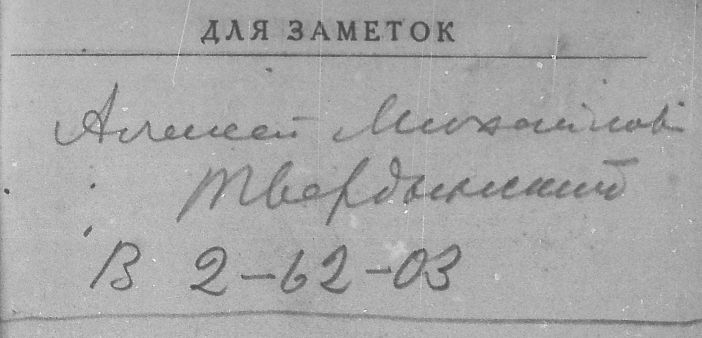 ДЛЯ ЗАМЕТОК
Алексей Михайлов
Твердынский
В 2-62-03